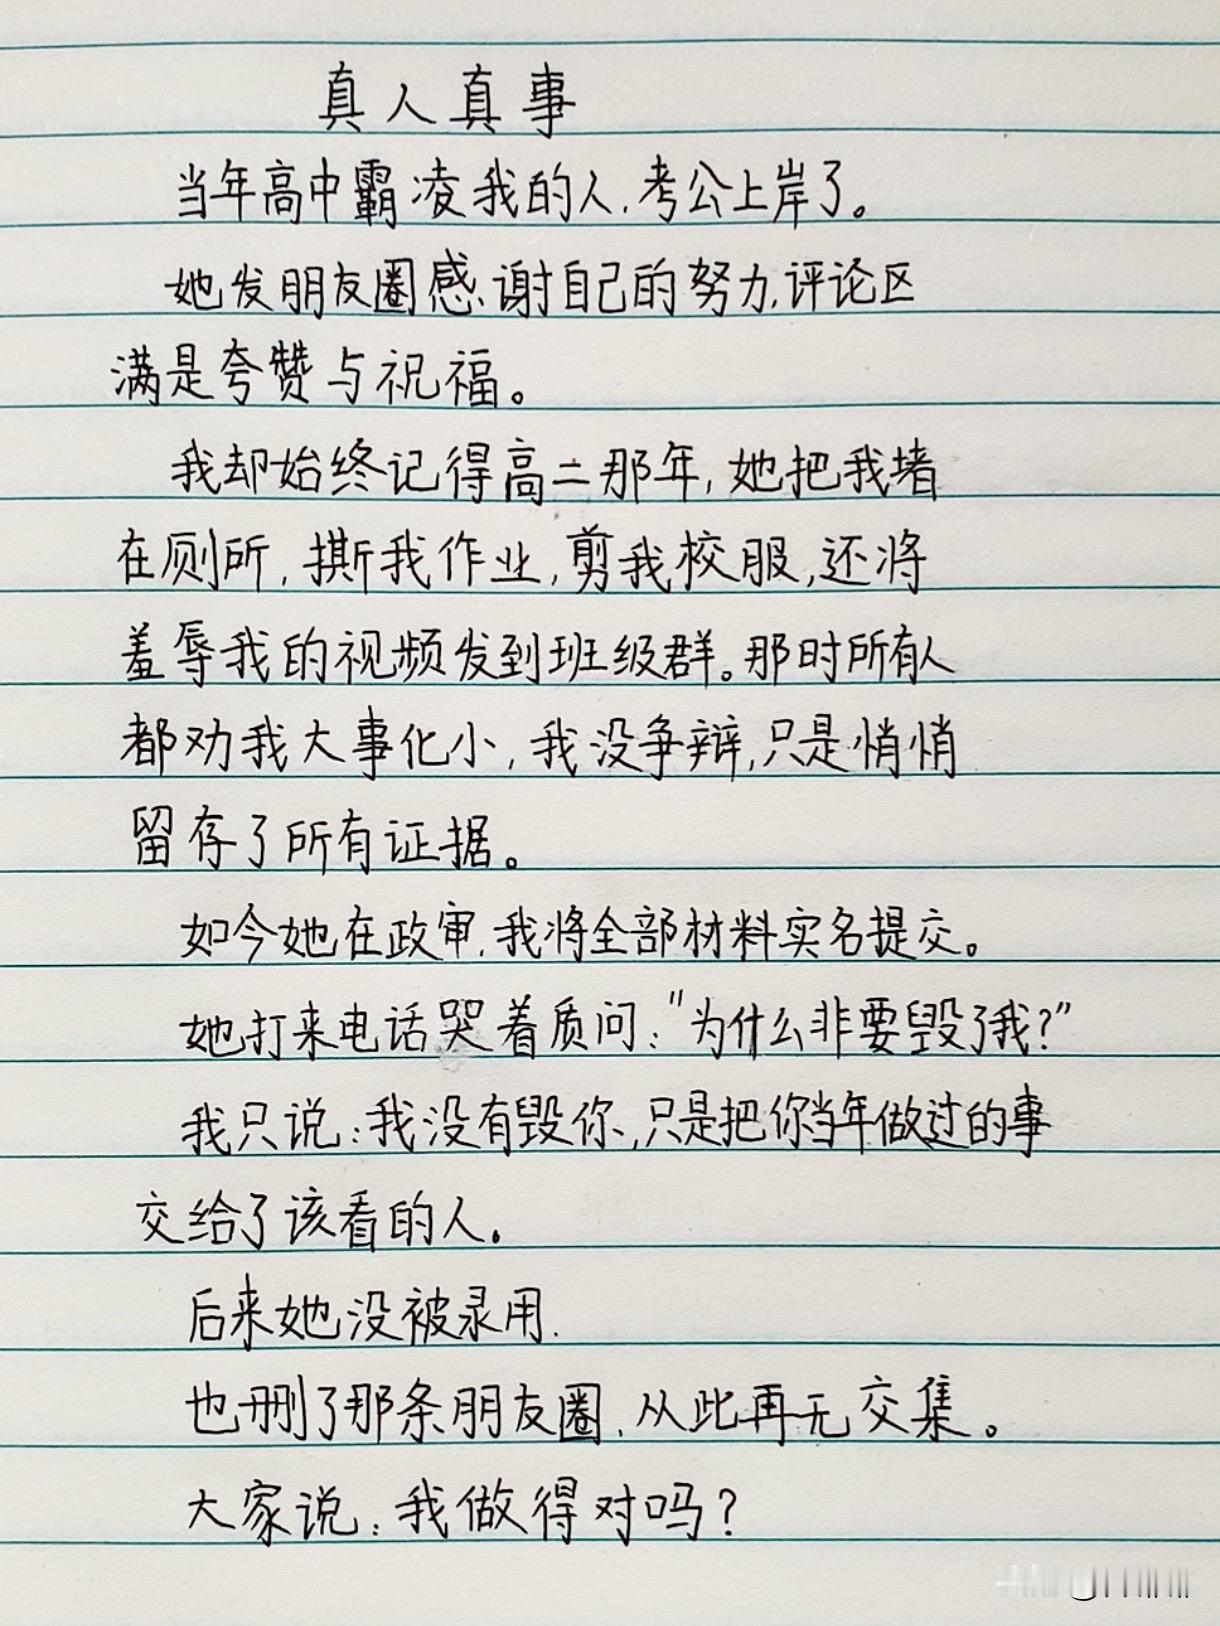 真人真事
当年高中霸凌我的人,考公上岸了。
她发朋友圈感谢自己的努力,评论区
满是夸赞与祝福。
我却始终记得高二那年,她把我堵
在厕所,撕我作业,剪我校服,还将
羞辱我的视频发到班级群。那时所有人
都劝我大事化小,我没争辩,只是悄悄
留存了所有证据。
如今她在政审,我将全部材料实名提交。
她打来电话哭着质问:"为什么非要毁了我?"
我只说:我没有毁你,只是把你当年做过的事
交给了该看的人.
后来她没被录用.
也删了那条朋友圈,从此再无交集。
大家说:我做得对吗?